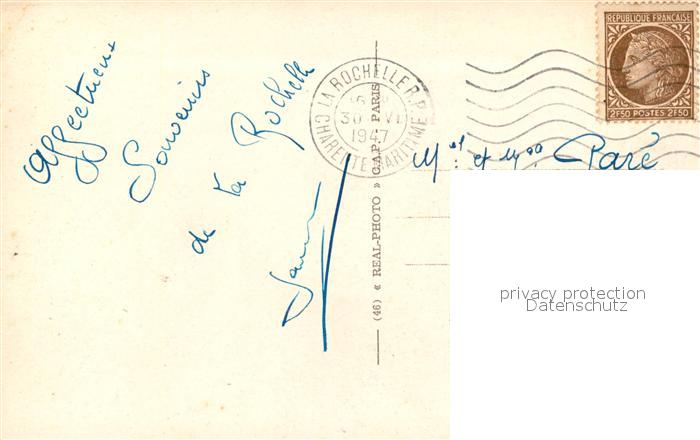 Affectueux
Souvenirs
de La Rochelle
LA ROCHELLE R.P.
30 VI
1947
CHARENTE MARITIME
(46) « REAL-PHOTO » C.A.P. PARIS
REPUBLIQUE FRANÇAISE
2F50 POSTES 2F50
Mr et Mme Paré
privacy protection
Datenschutz